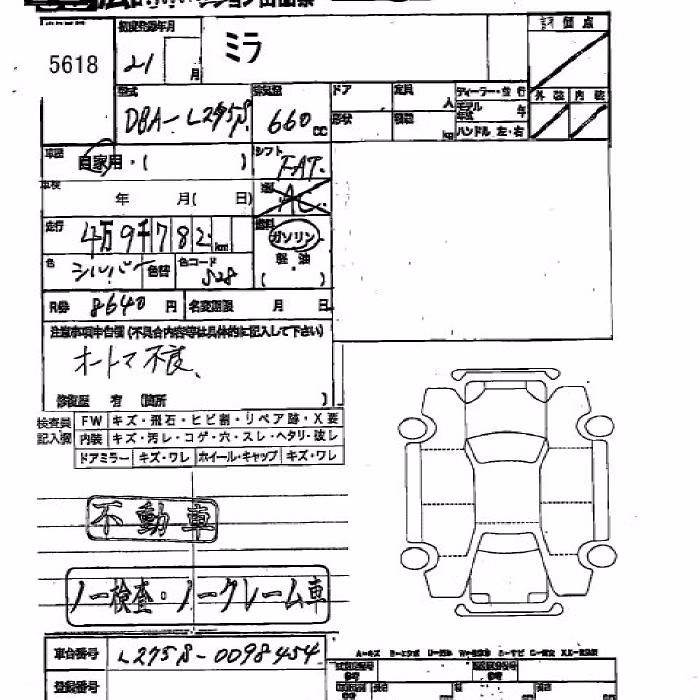 5618
初度登録年月
21 月
ミラ
評価点
外装 内装
型式
DBA-L275S
排気量
660 cc
ドア 定員 人
形状 積載 kg
ディーラー・並行
モデル年式 年
ハンドル 左・右
車歴
自家用・( )
シフト
FAT.
車検
年 月( 日)
AC
走行
4万9千782 km
燃料
ガソリン
軽油
( )
色
シルバー
色替
色コード
S28
R券 8640 円
名変期限 月 日
注意事項申告欄 (不具合内容等は具体的に記入して下さい)
オートマ不良、
修復歴 有 (箇所 )
検査員記入欄
FW キズ・飛石・ヒビ割・リペア跡・X要
内装 キズ・汚レ・コゲ・穴・スレ・ヘタリ・破レ
ドアミラー キズ・ワレ ホイール・キャップ キズ・ワレ
不動車
ノー検査・ノークレーム車
車台番号 L275S-0098454
登録番号